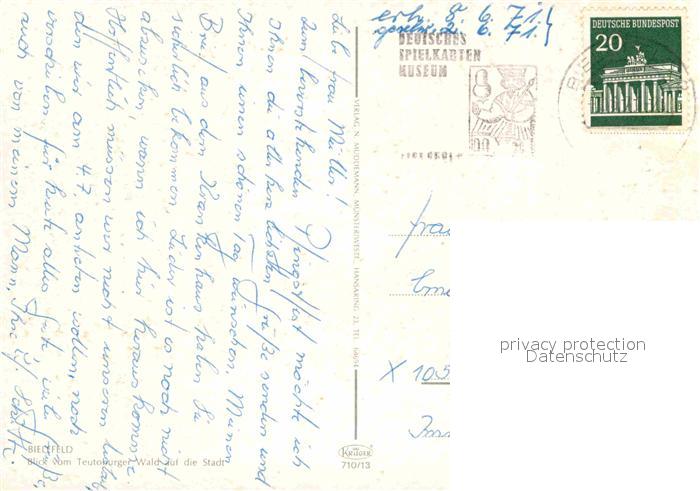 Liebe Frau Müller!
Zum bevorstehenden Pfingstfest möchte ich
Ihnen die allerherzlichsten Grüße senden und
Ihnen einen schönen Tag wünschen. Meinen
Brief aus dem Krankenhaus haben Sie
sicherlich bekommen. Leider ist es noch nicht
abzusehen, wann ich hier heraus komme.
Hoffentlich müssen wir nicht unseren Urlaub,
den wir am 4.7. antreten wollen, noch
verschieben. Für heute alles Gute viele Grüße
auch von meinem Mann, Ihre
BIELEFELD
Blick vom Teutoburger Wald auf die Stadt
VERLAG N. MÜDDEMANN, MÜNSTER/WESTF., HANSARING 23, TEL. 64654
KRÜGER
710/13
6. 71
6. 71
DEUTSCHES
SPIELKARTEN
MUSEUM
DEUTSCHE BUNDESPOST
20
BIE
Frau
X 105
privacy protection
Datenschutz